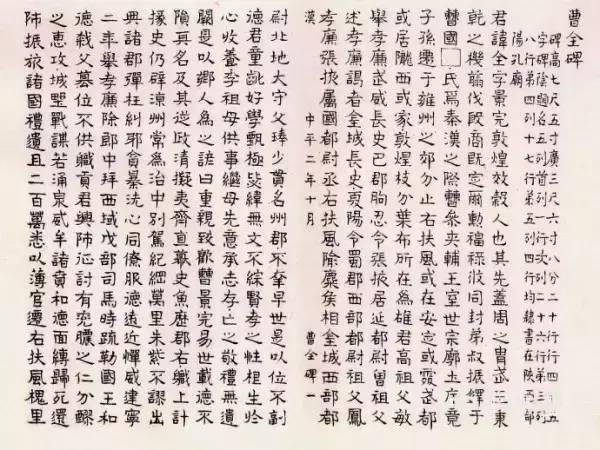 曹全碑
碑高七尺五寸廣三尺六寸八分二十行行四十五
字碑陰題名五列首列一行次列二十六行第三列
八行第四列十七行第五列四行均隸書在陝西郃
陽孔廟
君諱全字景完敦煌效穀人也其先蓋周之胄武王秉
乾之機翦伐殷商既定爾勳福祿攸同封弟叔振鐸于
曹國□氏焉秦漢之際曹參夾輔王室世宗廓土斥竟
子孫遷于雍州之郊分止右扶風或在安定或處武都
或居隴西或家敦煌枝分葉布所在為雄君高祖父敏
舉孝廉武威長史巴郡朐忍令張掖居延都尉曾祖父
述孝廉謁者金城長史夏陽令蜀郡西部都尉祖父鳳
孝廉張掖屬國都尉丞右扶風隃麋侯相金城西部都
漢 中平二年十月 曹全碑 一
尉北地大守父琫少貫名州郡不幸早世是以位不副
德君童齔好學甄極毖緯無文不綜賢孝之性根生於
心收養季祖母供事繼母先意承志存亡之敬禮無遺
闕是以鄉人為之諺曰重親致歡曹景完易世載德不
隕其名及其從政清擬夷齊直慕史魚歷郡右職上計
掾史仍辟涼州常為治中別駕紀綱萬里朱紫不謬出
典諸郡彈枉糾邪貪暴洗心同僚服德遠近憚威建寧
二年舉孝廉除郎中拜西域戊部司馬時疏勒國王和
德弒父篡位不供職貢君興師征討有兗膿之仁分醪
之惠攻城野戰謀若涌泉威牟諸賁和德面縛歸死還
師振旅諸國禮遺且二百萬悉以薄官遷右扶風槐里